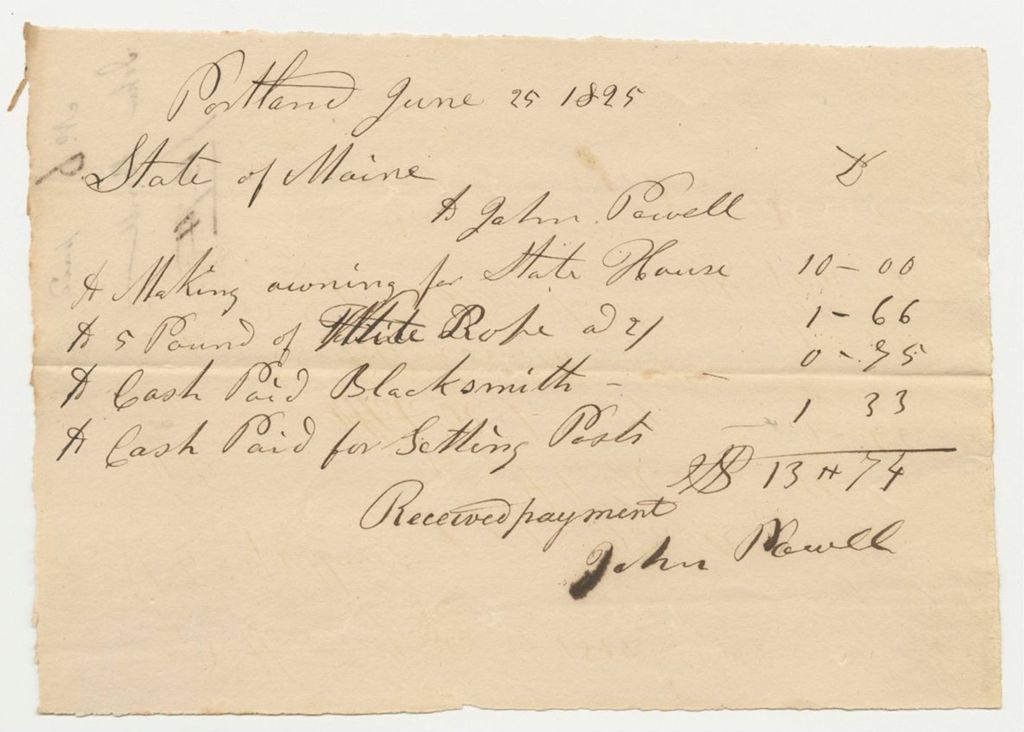 Portland June 25 1825
State of Maine Dr
To John Powell
To Making owning for State House 10-00
To 5 Pound of White Rope ad 2/ 1-66
To Cash Paid Blacksmith - - 0-75
To Cash Paid for Setting Posts - 1 33
$ 13 " 74
Received payment
John Powell